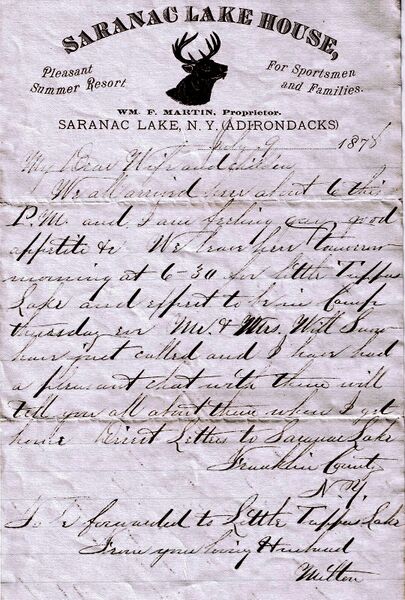 SARANAC LAKE HOUSE,
Pleasant
Summer Resort
For Sportsmen
and Families.
WM. F. MARTIN, Proprietor.
SARANAC LAKE, N.Y. (ADIRONDACKS)
July 9 1878
My Dear Wife and children
We all arrived here about 6 this
P.M. and I am feeling good
appetite &c We leave here tomorrow
morning at 6-30 for little Tupper
Lake and expect to be in Camp
thursday eve Mr. & Mrs. Will
have just called and I have had
a pleasant chat with them will
tell you all about them when I get
home Direct Letters to Saranac Lake
Franklin County
N.Y.
To be forwarded to Little Tupper Lake
From your loving Husband
Milton